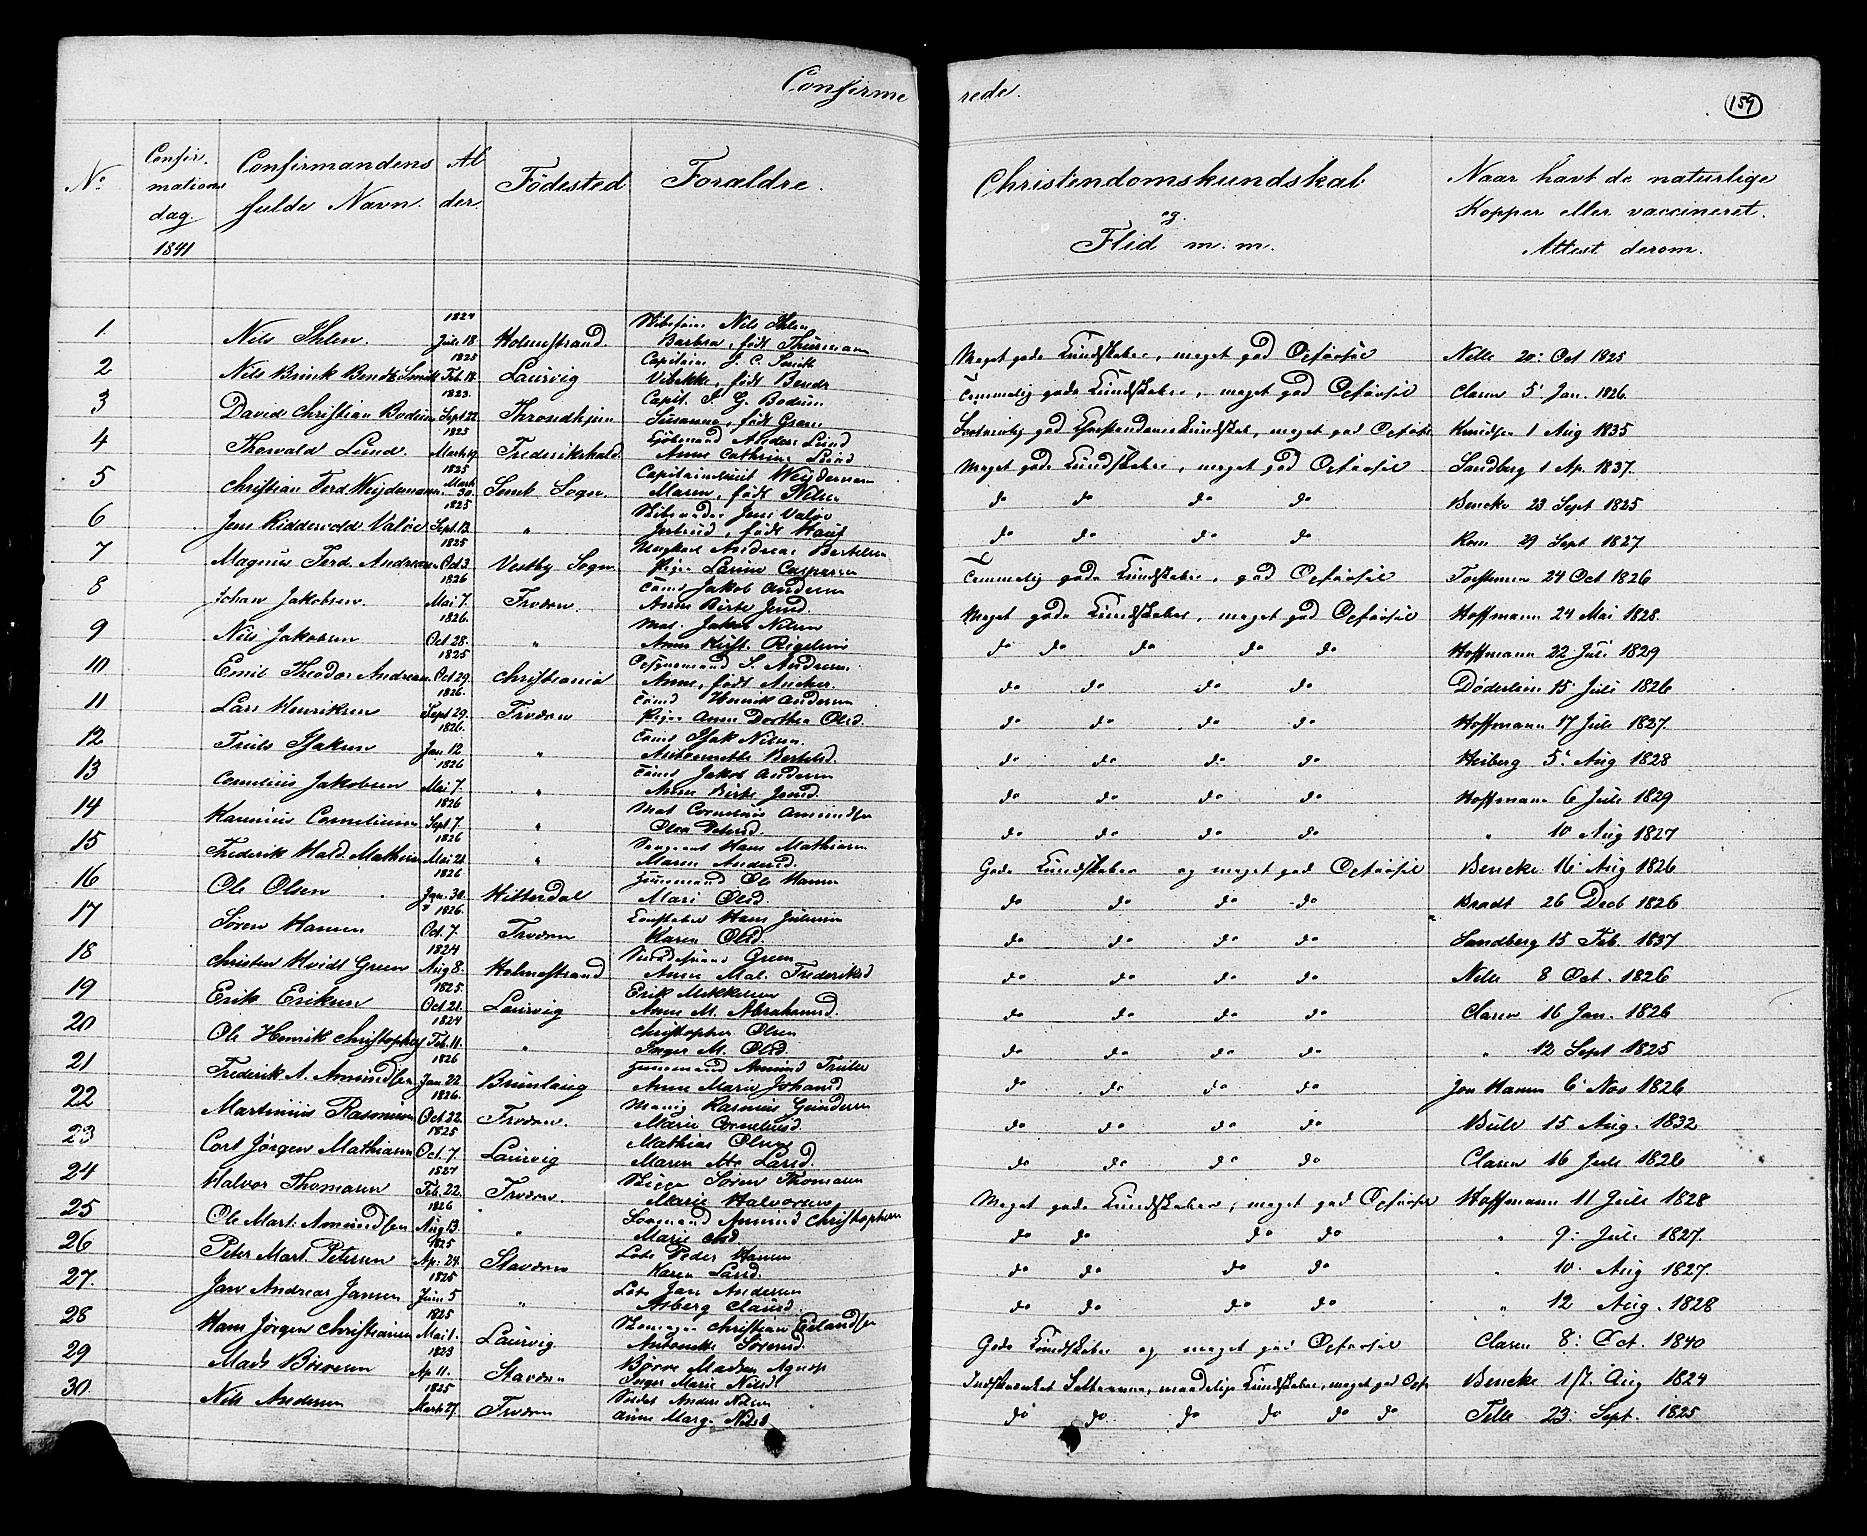 Confirmerede.
159
No
Confirmations dag. 1841
Confirmandens fulde Navn.
Alder.
Födested
Foraldre.
Christendomskundskab og Flid m. m.
Naar havt de naturlige Kopper eller vaccineret. Attest derom.
1 Nils Ihlen. 1824 Juli 18. Holmestrand. Nils Ihlen Barbra, födt Thurmann Meget gode Kundskaber, meget god Opförsel Nille 20: Oct 1825
2 Nils Brink Bendz Smidt 1825 Feb. 18. Laurvig Capitain J. C. Smidt Vibekke, födt Bendz Temmelig gode Kundskaber, meget god Opförsel Claren 5' Jan. 1826.
3 David Christian Bodum 1823. Sept 22. Throndhjem Capit. J. G. Bodum Susanna, födt Gram god Christendomskundskab, meget god Opförsel Knudsen 1 Aug 1835
4 Thorvald Lund. 1825 Marts 19. Frederikshald. Anders Lund Anne Cathrine Lund Meget gode Kundskaber, meget god Opförsel Sandberg 1 Ap. 1837.
5 Christian Ferd. Weydemann 1825 Marts 30. Semb Sogn. Weydeman Maren, födt Nilsen do do do do Bencke 23 Sept 1825
6 Jens Ridderwold Valöe 1825 Sept. 13. " Jens Valöe födt do do do do 29 Sept 1827
7 Magnus Ferd. Andreasen 1825 Oct 3. Vestby Sogn. Andreas Bertelsen Pige Larine Caspersen Temmelig gode Kundskaber, god Opförsel 24 Oct 1826
8 Johan Jakobsen. 1826 Mai 7. Fredvn. Jakob Andersen Anne Birte Jensd. Meget gode Kundskaber, meget god Opförsel Hoffmann 24 Mai 1828.
9 Nils Jakobsen 1826. Oct 28. " Mat. Jakob Nilsen Anne Kirst. do do do do do Hoffmann 22 Juli 1829
10 Emil Theodor Andresen. 1825 Oct 29. Christiania S. Andresen. Anne, födt Ancker. do do do do Döderlein 15 Juli 1826
11 Lars Henriksen 1826. Sept 29. Fredvn Henrik Andersen Pige Anne Dorthea Olsd. do do do do Hoffmann 17 Juli 1827.
12 Truls Isaksen 1826. Jan. 12 " Isak Nilsen. Bertelsd. do do do do Heiberg 5' Aug 1828
13 Cornelius Jakobsen 1826 Mai 7. " Jakob Andersen Anne Birte Jensd. do do do do Hoffmann 6 Juli 1829
14 Rasmus Corneliusen 1826 Sept 7. " Mat Cornelius Amundsen Olea Petersd. do do do do " 10 Aug 1827
15 Frederik Hald. Mathisen 1826 Mai 21. " Sergeant Hans Mathiasen Maren Andersd. Gode Kundskaber og meget god Opförsel Bencke 16 Aug 1826
16 Ole Olsen 1826 Jan. 30. Hitterdal Ole Hansen Mari Olsd. do do do do Bradt 26 Decb 1826
17 Sören Hansen 1826. Oct. 7. Fredvn Hans Juliusen Karen Olsd. do do do do Sandberg 15 Feb. 1837
18 Christen Hvidt Green 1824 Aug 8. Holmestrand Green Anne Mal. Frederiksd do do do do Nille 8 Oct. 1826
19 Erik Eriksen 1825. Oct 21. Laurvig Erik Mikkelsen Anne M. Abrahamsd. do do do do Claren 16 Jan. 1826
20 Ole Henrik Christophersen 1824 Feb. 11. " Christopher Olsen Inger M. Olsd. do do do do " 12 Sept 1825
21 Frederik A. Amundsen 1826 Jan 22. Brunlaug Amund Trulsen Anne Marie Johansd do do do do Jon Hansen 6' Nov 1826
22 Martinius Rasmusen 1826. Oct. 22. Fredvn. Rasmus Gundersen Marie Corneliusd. do do do do Bull 15 Aug. 1832
23 Cort Jörgen Mathiasen 1825 Oct. 7. Laurvig Mathias Olsen Maren Larsd. do do do do Claren 16 Juli 1826
24 Halvor Thomasen 1827 Feb. 22. Fredvn. Sören Thomasen Marie Halvorsen Meget gode Kundskaber, meget god Opförsel Hoffmann 11 Juli 1828
25 Ole Mart. Amundsen 1826 Aug 13. " Amund Christophersen Marie do do do do " 9: Juli 1827.
26 Peter Mart. Petersen 1825 Ap: 24. Stavern Lods Peder Hansen Karen Larsd. do do do do " 10. Aug 1827.
27. Jan Andreas Jansen 1825 Juni 5 " Lods Jan Andersen Asberg Clausd. do do do do " 12 Aug. 1828
28 Hans Jörgen Christiansen 1825 Mai 1. Laurvig Christian Erlandsen Antonette Sörensd. Gode Kundskaber og meget god Opförsel Claren 8: Oct. 1840
29 Mads Börresen 1823 Ap 11. Stavern Börre Madsen Inger Marie Nilsd. Kundskaber, meget god Opf. Bencke 1/7. Aug 1824
30. Nils Andersen 1825 Marts 27. Fredvn Anders Nilsen Anne Marg. Nilsd do do do do do do Tille 23: Sept. 1825